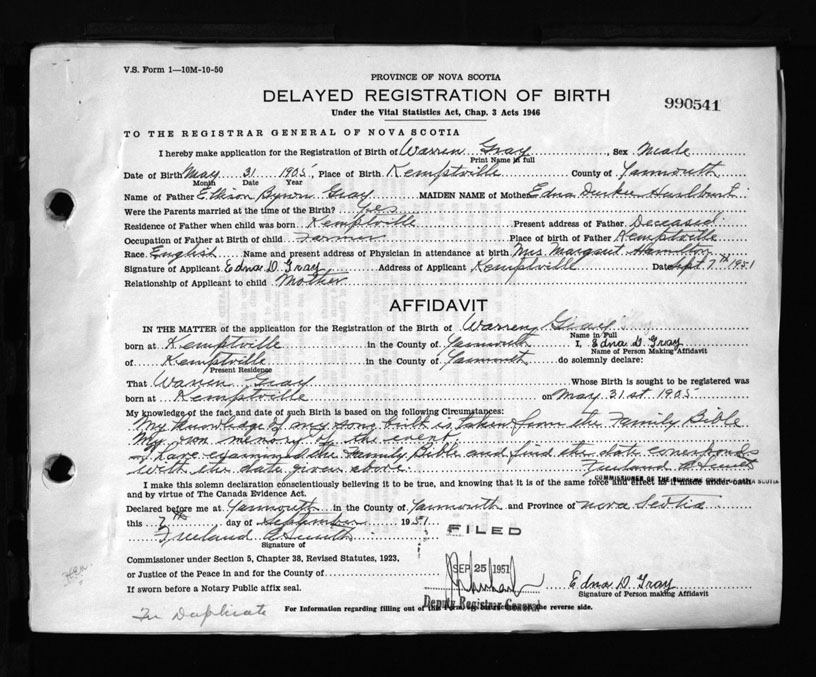 V.S. Form 1—10M-10-50
PROVINCE OF NOVA SCOTIA
DELAYED REGISTRATION OF BIRTH
990541
Under the Vital Statistics Act, Chap. 3 Acts 1946
TO THE REGISTRAR GENERAL OF NOVA SCOTIA
I hereby make application for the Registration of Birth of Warren Gray, Sex Male
Print Name in full
Date of Birth May 31 1905, Place of Birth Kemptville County of Yarmouth
Month Date Year
Name of Father Byron Gray MAIDEN NAME of Mother Edna Durkee Hurlburt
Were the Parents married at the time of the Birth? Yes
Residence of Father when child was born Kemptville Present address of Father Deceased
Occupation of Father at Birth of child Farmer Place of birth of Father Kemptville
Race English Name and present address of Physician in attendance at birth Mrs. Margaret Hamilton
Signature of Applicant Edna D. Gray Address of Applicant Kemptville Date Sept 7th 1951
Relationship of Applicant to child Mother
AFFIDAVIT
IN THE MATTER of the application for the Registration of the Birth of Warren Gray
Name in Full
born at Kemptville in the County of Yarmouth I, Edna D. Gray
Name of Person Making Affidavit
of Kemptville in the County of Yarmouth do solemnly declare:
Present Residence
That Warren Gray Whose Birth is sought to be registered was
born at Kemptville on May 31st 1905
My knowledge of the fact and date of such Birth is based on the following Circumstances:
My knowledge of my sons birth is taken from the Family Bible
My own memory of the event
I have examined the Family Bible and find the date corresponds
with the date given above. Freeland
COMMISSIONER OF THE SUPREME COURT OF NOVA SCOTIA
I make this solemn declaration conscientiously believing it to be true, and knowing that it is of the same force and effect as if made under oath
and by virtue of The Canada Evidence Act.
Declared before me at Yarmouth in the County of Yarmouth and Province of Nova Scotia
this 7th day of September 1951
FILED
Freeland
Signature of
Commissioner under Section 5, Chapter 38, Revised Statutes, 1923,
or Justice of the Peace in and for the County of
SEP 25 1951
Edna D. Gray
Signature of Person making Affidavit
If sworn before a Notary Public affix seal.
Deputy Registrar General
In Duplicate
For Information regarding filling out of this Form the reverse side.